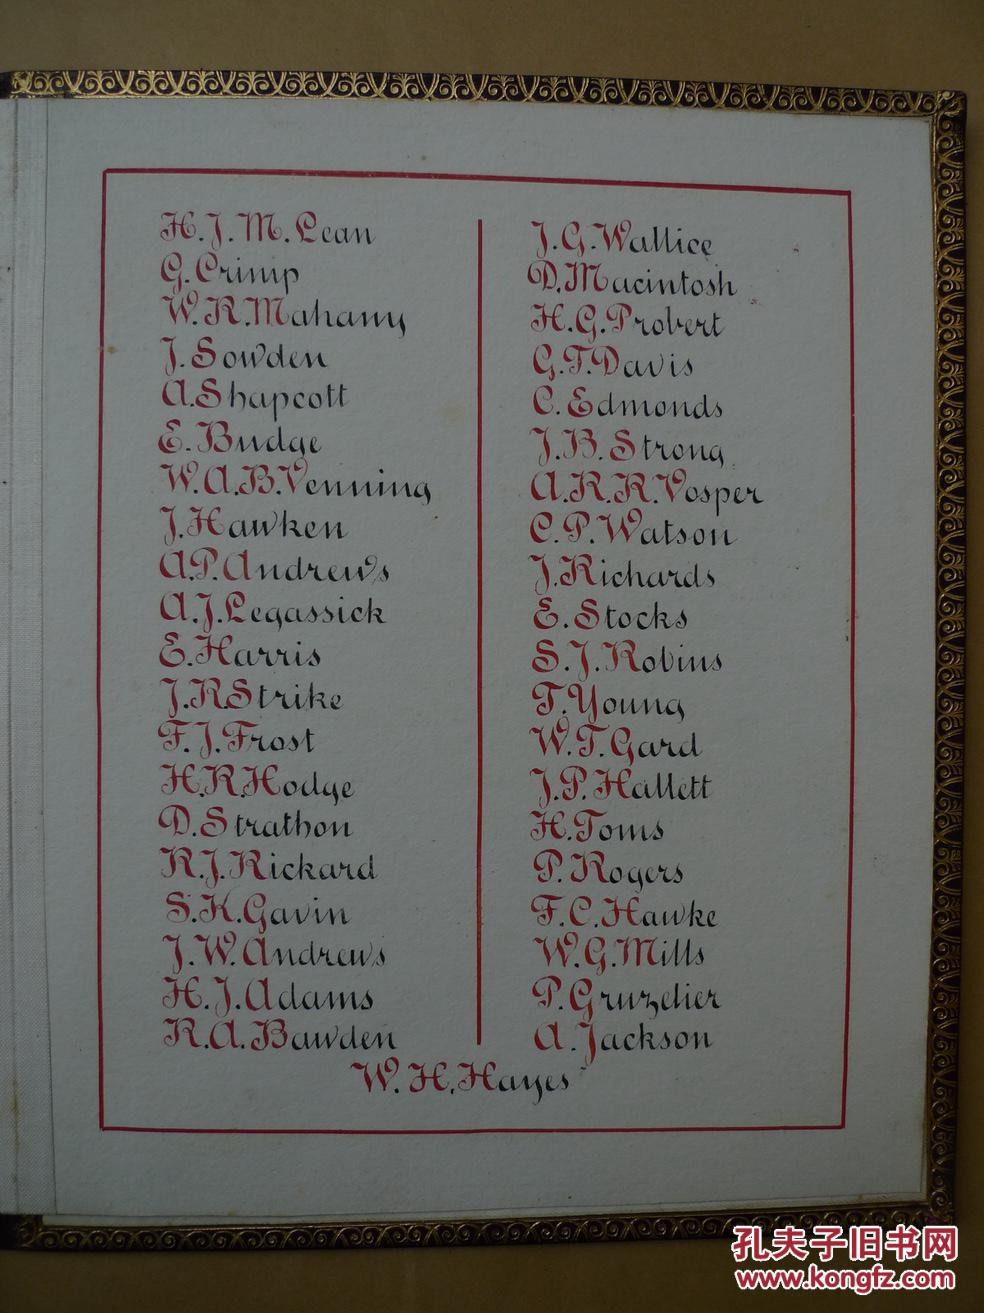 H.J.M.Lean
G.Crimp
W.R.Mahany
J.Sowden
A.Shapcott
E.Budge
W.A.B.Venning
J.Hawken
A.P.Andrews
A.J.Legassick
E.Harris
J.R.Strike
F.J.Frost
H.R.Hodge
D.Strathon
R.J.Rickard
S.K.Gavin
J.W.Andrews
H.J.Adams
R.A.Bawden
J.G.Wallice
D.Macintosh
H.G.Probert
G.T.Davis
C.Edmonds
J.B.Strong
A.R.R.Vosper
C.P.Watson
J.Richards
E.Stocks
S.J.Robins
T.Young
W.T.Gard
J.P.Hallett
H.Toms
P.Rogers
F.C.Hawke
W.G.Mills
P.Gruzelier
A.Jackson
W.H.Hayes
孔夫子旧书网
www.kongfz.com